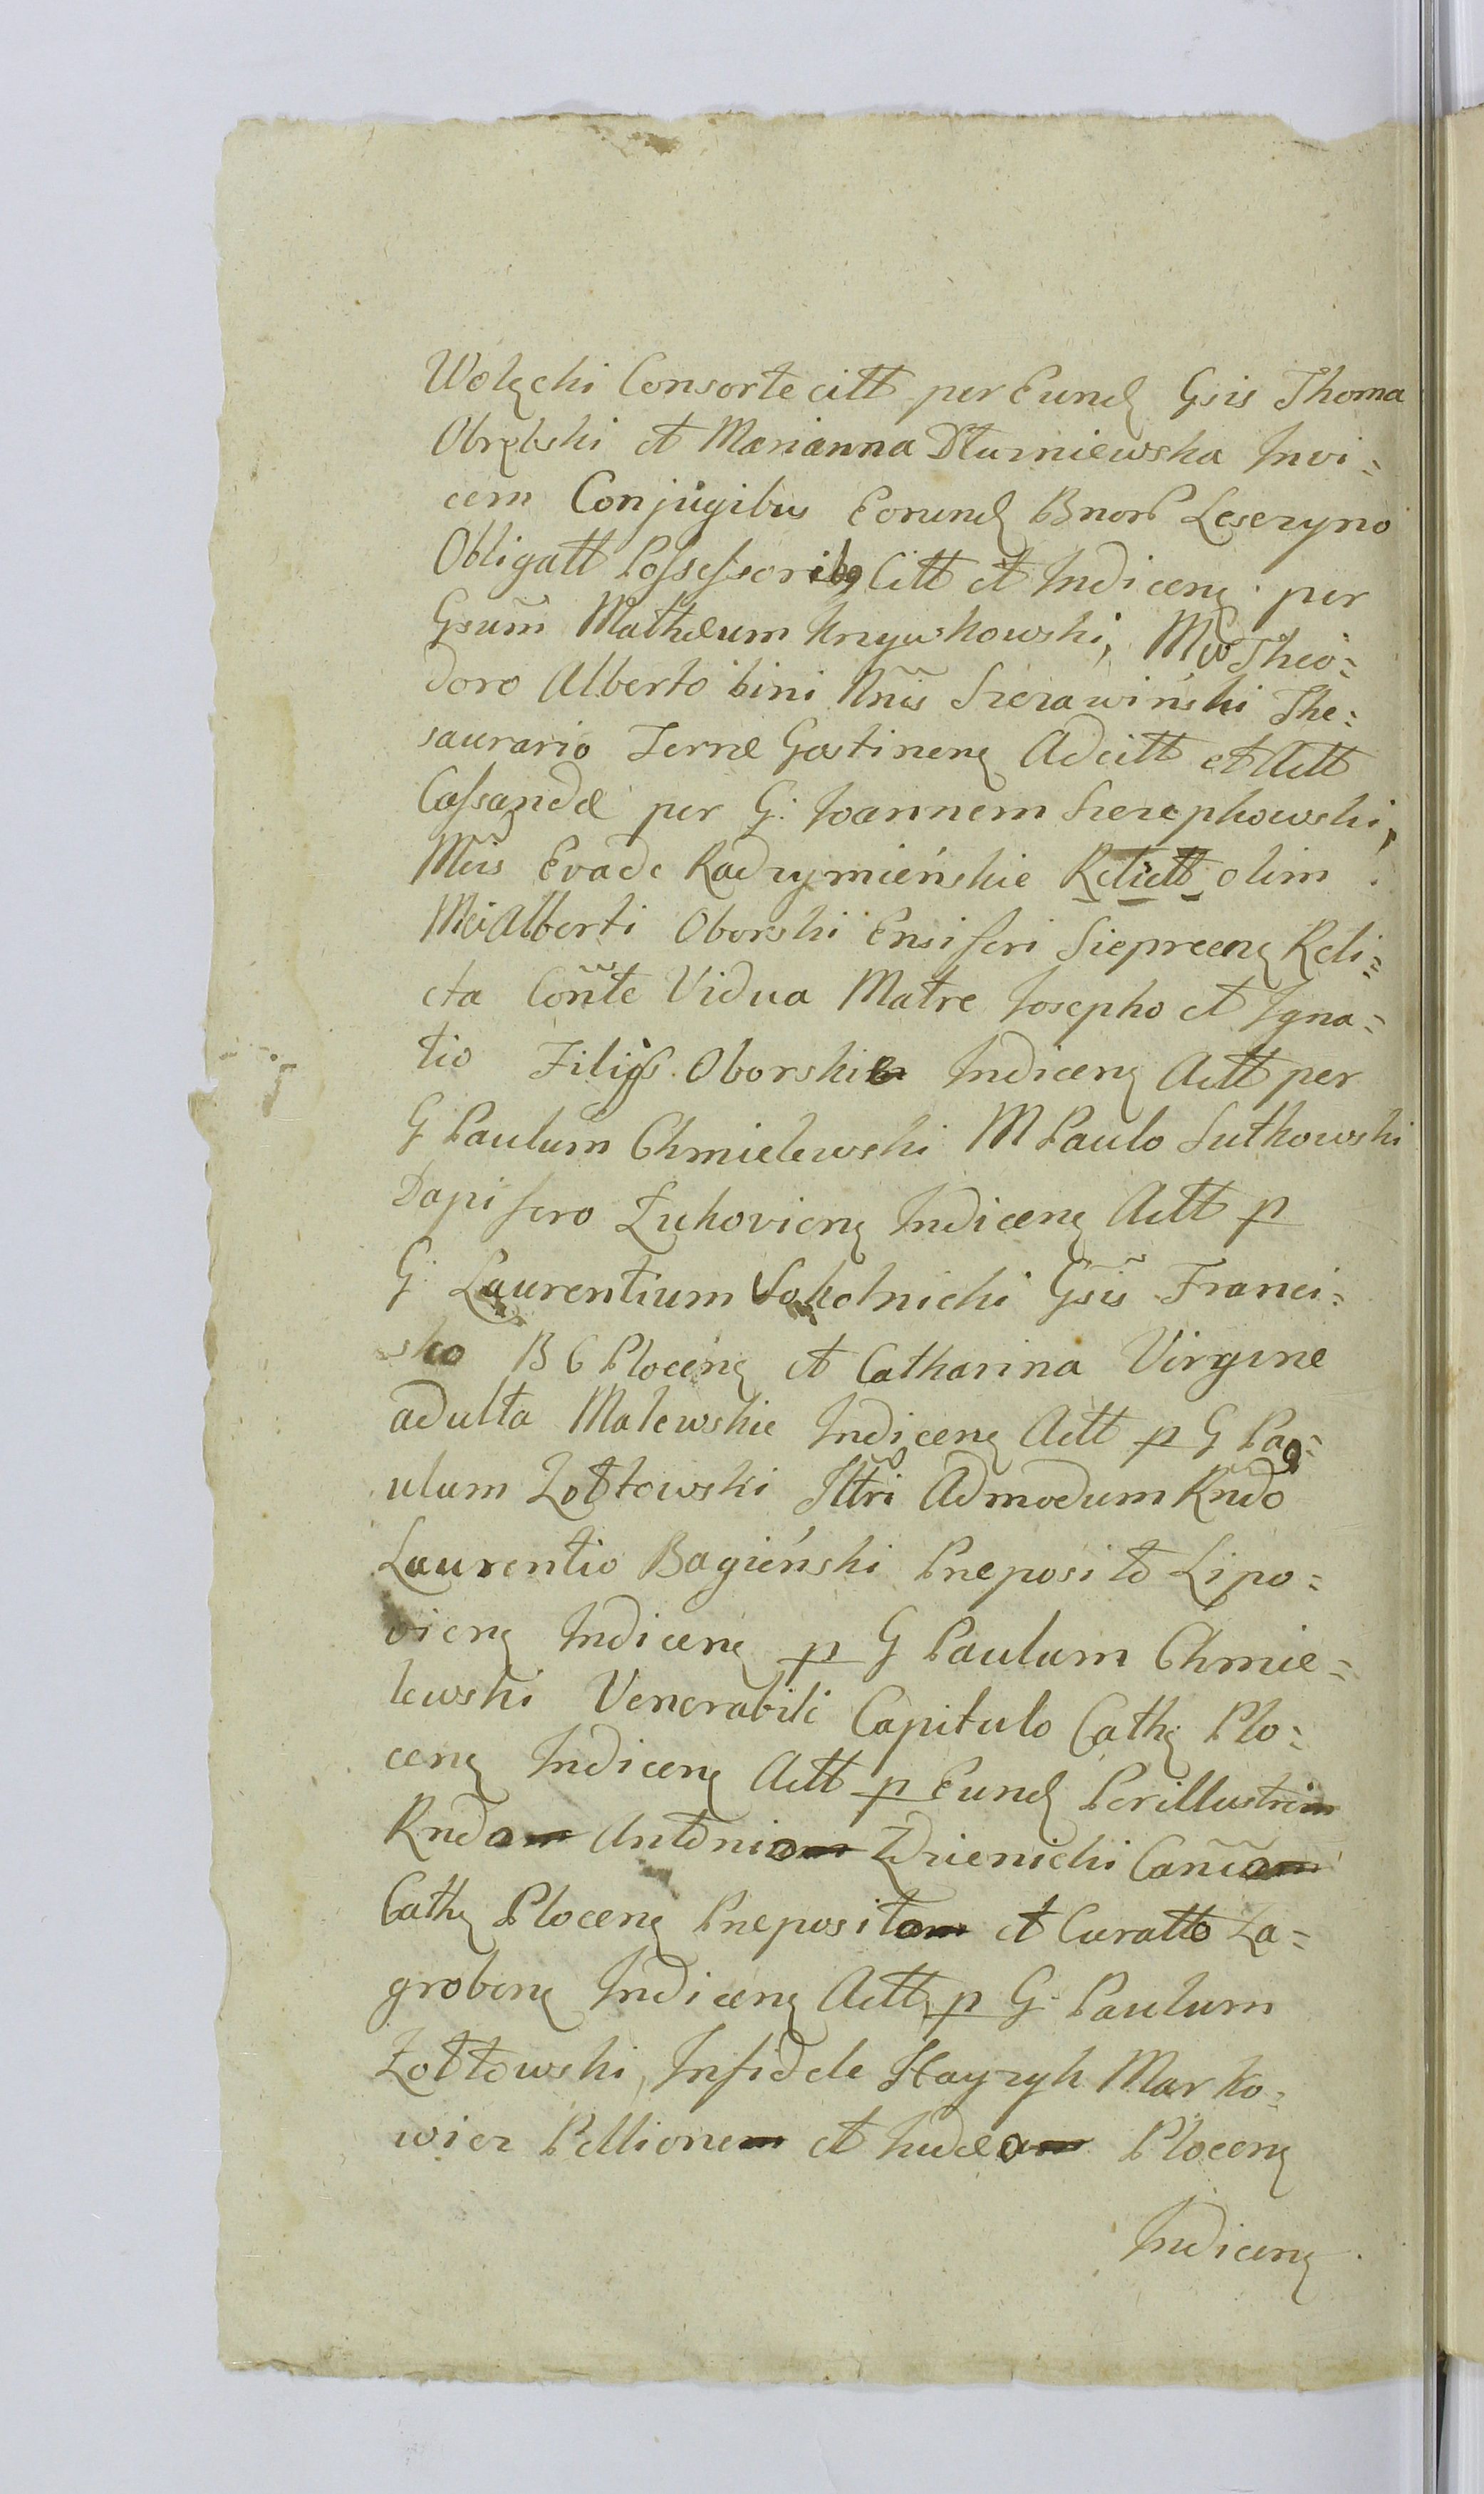 Wolęcki Consorte citt per Eund Gsis Thoma
Obrębski et Marianna Dłuzniewska Invi=
cem Conjugibus Eorund Bnor Leszczyno
Obligatt Possessorib9 Citt et Indicenę per
Gsum Mathæum Knyszkowski, Mco Theo=
doro Alberto bini Nnis Szczawiński The=
saurario Terræ Gostinenę Adcitt et Actt
Cassandæ per G: Joannem Szczepkowski,
Mcis Evade Radzymińskie Relictt olim
Mci Alberti Oborski Ensiferi Sieprcenę Reli=
cta Conte Vidua Matre Josepho et Igna=
tio Filijs Oborskie Indicenę Actt per
G Paulum Chmielewski M Paulo Sutkowski
Dapifero Łukovienę Indicenę Actt p
G: Laurentium Sokolnicki Gsis Franci=
sko B C Plocenę et Catharina Virgine
adulta Malewskie Indicenę Actt p G Pa=
ulum Zołtowski Illtri Admodum Rndo
Laurentio Bagieński Præposito Lipo=
vienę Indicenę p G Paulum Chmie=
lewski Venerabili Capitulo Cathę Plo=
cenę Indicenę Actt p Eund Perillustrim
Rndo Antonio Zdzienicki Canco
Cathę Plocenę Præposito et Curatto Za=
grobenę Indicenę Actt p G: Paulum
Zołtowski, Infidele Hayzyk Marko=
wicz Pellione et Judæo Plocenę
Indicenę